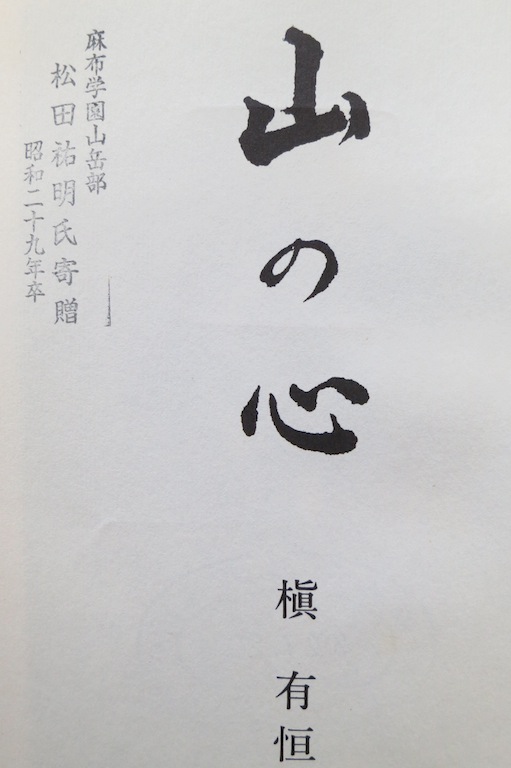 山の心
槇 有恒
麻布学園山岳部
松田祐明氏寄贈
昭和二十九年卒